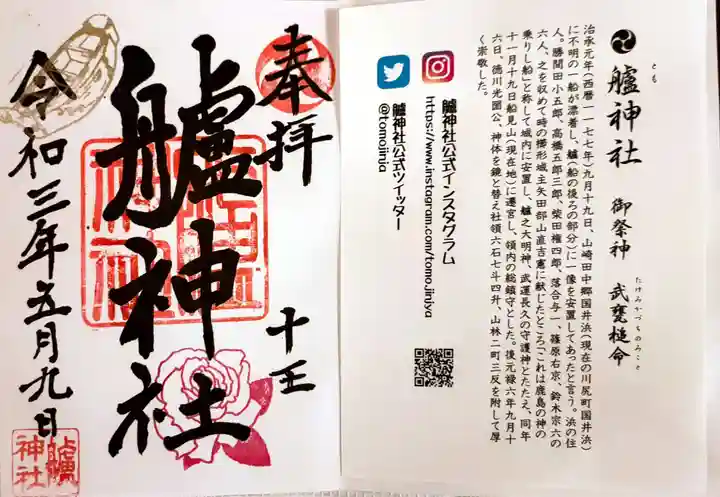 奉拝
十王
艫神社
令和三年五月九日
艫
神社
とも
艫神社 御祭神 武甕槌命
たけみかづちのみこと
治承元年(西暦一一七七年)九月十九日、山崎田中郷国井浜(現在の川尻町国井浜)
に不明の一船が漂着し、艫(船の後ろの部分)に一像を安置してあったと言う。浜の住
人。勝間田小五郎、高橋五郎三郎、柴田権四郎、落合与一、篠原右京、鈴木宗六の
六人、之を収めて時の櫛形城主矢田部山直吉憲に献じたところ「これは鹿島の神の
乗りし船」と称して城内に安置し、艫之大明神、武運長久の守護神とたたえ、同年
十一月十九日船見山(現在地)に遷宮し、領内の総鎮守とした。後元禄六年九月十
六日、徳川光圀公、神体を鏡と替え社領六石七斗四升、山林二町三反を附して厚
く崇敬した。
艫神社公式インスタグラム
https://www.instagram.com/tomo.jinjya
艫神社公式ツイッター
@tomojinja